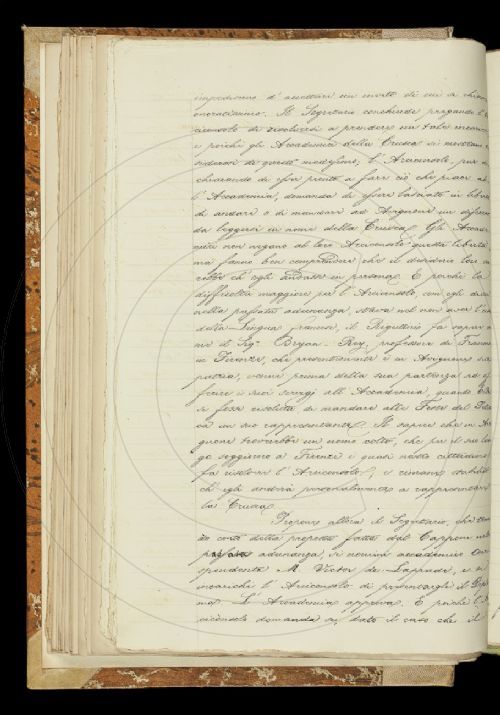 impediscono d'accettare un invito di cui si chiama
onoratissimo. Il Segretario conchiude pregando l'
ciconsolo di risolversi a prendere un tale incarico
e poichè gli Accademici della Crusca si mostrano
desiderosi di questo medesimo; l'Arciconsolo, pur
dichiarando di esser pronto a fare ciò che piace al
l'Accademia, domanda di essere lasciato in libertà
di andare o di mandare ad Avignone un discorso
da leggersi in nome della Crusca. Gli Accade
mici non negano al loro Arciconsolo questa libertà
ma fanno ben comprendere che il desiderio loro sa
rebbe ch'egli andasse in persona. E poichè la
difficoltà maggiore per l'Arciconsolo, com'egli disse
nella passata adunanza, stava nel non aver l'uso
della Lingua francese, il Segretario fa sapere
me il Sig. Bryan Rey, professore di Francese
in Firenze, che presentemente è in Avignone sua
patria, venne prima della sua partenza ad of
ferire i suoi servigi all'Accademia, quando Ella
si fosse risoluta di mandare alle Feste del Petrar
ca un suo rappresentante. Il sapere che in Avi
gnone troverebbe un uomo colto, che pel suo lun
go soggiorno a Firenze è quasi nostro cittadino
fa risolvere l'Arciconsolo; e rimane stabilito
ch'egli anderà personalmente a rappresentare
la Crusca.
Propone allora il Segretario, che
to conto della proposta fatta dal Capponi nella
passata adunanza, si nomini accademico Corri
spondente M. Victor de Laprade, e si
incarichi l'Arciconsolo di presentargli il Diplo
ma. L'Accademia approva. E poichè l'Ar
ciconsolo domanda se, dato il caso che il